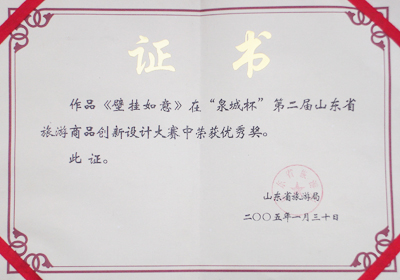 证书
作品《壁挂如意》在“泉城杯”第二届山东省
旅游商品创新设计大赛中荣获优秀奖。
此证。
山东省旅游局
二〇〇五年一月三十日